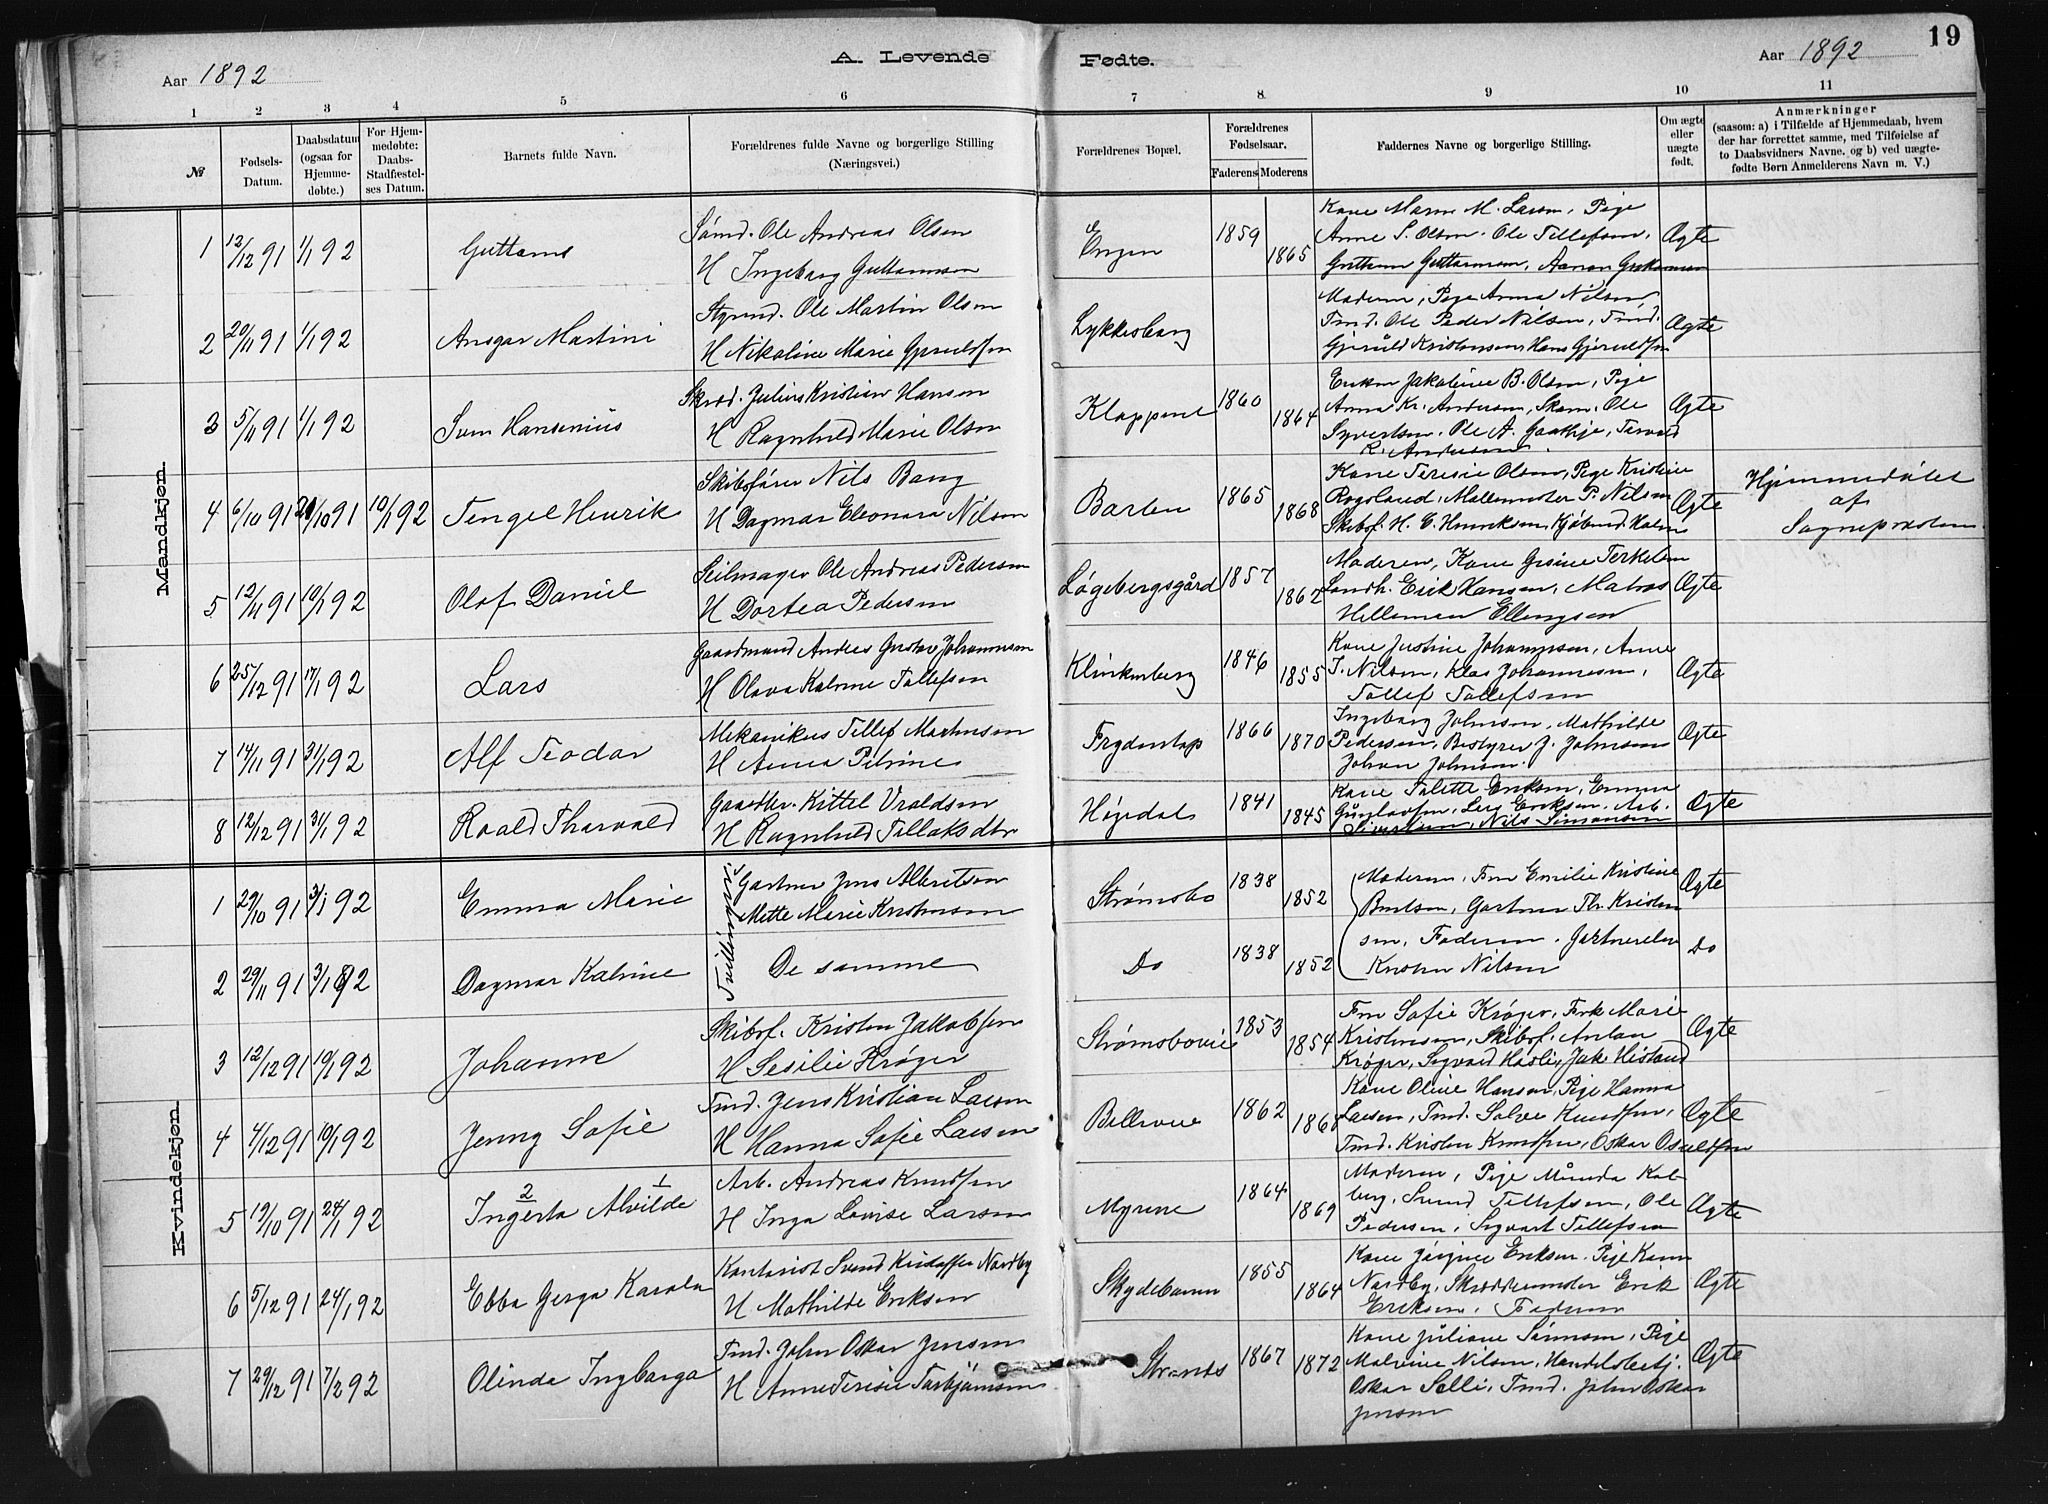 Aar 1892
A. Levende
Fødte.
Aar 1892
19
1 2 3 4 5 6 7 8 9 10 11
№
Fødsels-
Datum.
Daabsdatum
(ogsaa for
Hjemme-
døbte.)
For Hjem-
medøbte:
Daabs-
Stadfæstel-
ses Datum.
Barnets fulde Navn.
Forældrenes fulde Navne og borgerlige Stilling
(Næringsvei.)
Forældrenes Bopæl.
Forældrenes
Fødselsaar.
Faderens Moderens
Faddernes Navne og borgerlige Stilling.
Om ægte
eller
uægte
født.
Anmærkninger
(saasom: a) i Tilfælde af Hjemmedaab, hvem
der har forrettet samme, med Tilføielse af
to Daabsvidners Navne, og b) ved uægte-
fødte Børn Anmelderens Navn m. V.)
Mandkjøn.
1 12/12 91 1/1 92 Guttorm
Sømd. Ole Andreas Olsen
H Ingeborg Guttormsen
Engen 1859 1865
Kone Maren M. Larsen, Pige
Anne S. Olsen. Ole Tellefsen,
Guttorm Guttormsen, Aanon Guttormsen
Ægte
2 20/11 91 1/1 92 Ansgar Martini
Styrmd. Ole Martin Olsen
H Nikoline Marie Gjeruldsen
Lykkesborg
Moderen, Pige Anna Nilsen
Tmd. Ole Peder Nilsen, Tmd.
Gjeruld Kristensen, Hans Gjeruldsen
Ægte
3 5/11 91 1/1 92 Sven Hansenius
Skræd. Julius Kristian Hansen
H Ragnhild Marie Olsen
Kloppene 1860 1864
Enken Jakobine B. Olsen, Pige
Anna Kr. Andersen, Skom. Ole
Syvertsen. Ole A.
R. Andersen
Ægte
4 6/10 91 21/10 91 10/1 92 Tengel Henrik
Skibsfører Nils Bang
H Dagmar Eleonora Nilsen
Barbu 1865 1868
Kone Teresie Olsen, Pige Kristine
Rogeland, P. Nilsen
Skibsf. H. C. Henriksen, Kjøbmd. Holm
Ægte
Hjemmedøbt
af
Sognepræsten
5 12/11 91 10/1 92 Olaf Daniel
Seilmager Ole Andreas Pedersen
H Dortea Pedersen
Løgebergsgård 1857 1862
Moderen, Kone Gusine Terkelsen
Landh. Erik Hansen, Matros
Helleman Ellingsen
Ægte
6 25/12 91 17/1 92 Lars
Gaardmand Anders Gustav Johannesen
H Olava Katrine Tollefsen
Klinkenberg 1846 1855
Kone Justine Johannesen, Anne
T. Nilsen, Klas Johannesen,
Tollef Tollefsen
Ægte
7 14/11 91 31/1 92 Alf Teodor
Mekanikus Tellef Martinsen
H Anna Petrine
Frydentop 1866 1870
Ingeborg Johnsen, Mathilde
Pedersen, Bestyrer J. Johnsen
Johan Johnsen.
Ægte
8 12/12 91 31/1 92 Roald Tharvald
Kittel Vraldsen
H Ragnhild Tellaksdtr
Høgedal 1841 1845
Kone Salette Eriksen, Emma
Gunulvsen, Lars Eriksen, Arb.
Sivertsen, Nils Simonsen
Ægte
Kvindekjøn.
Tvillinger
1 29/10 91 3/1 92 Emma Marie
Gartner Jens Albretsen
Mette Marie Kristensen
Strømsbo 1838 1852
Moderen, Fru Emilie Kristine
Bertsen, Gartner Th. Kristen
sen, Faderen. Gartnerelev
Kristen Nilsen
Ægte
2 29/11 91 3/1 92 Dagmar Katrine
De samme
Do 1838 1852
Do
3 12/12 91 10/1 92 Johanne
Skibsf. Kristen Jakobsen
H Sesilie Krøger
Strømsbovie 1853 1854
Fru Sofie Krøger, Frk Marie
Kristensen, Skibsf. Anton
Krøger, Sigvald Hasle, Jak. Hisland
Ægte
4 4/12 91 10/1 92 Jenny Sofie
Tmd. Jens Kristian Larsen
H Hanna Sofie Larsen
Bellevue 1862 1868
Kone Oline Hansen, Pige Hanna
Larsen, Tmd. Salve Knudsen,
Tmd. Kristen Knudsen, Oskar Osuldsen
Ægte
5 19/10 91 24/1 92 2 1
Ingerta Alvilde
Arb. Andreas Knudsen
H Inga Lovise Larsen
Myrene 1864 1869
Moderen, Pige Minda Kol-
berg, Svend Tellefsen, Ole
Pedersen, Sigvart Tellefsen
Ægte
6 5/12 91 24/1 92 Ebba Gerga Karola
Kontorist Svend Kristoffer Nordby
H Mathilde Eriksen
Skydebanen 1855 1864
Kone Jørgine Eriksen, Pige Karen
Nordby, Skræddermester Erik
Eriksen, Faderen
Ægte
7 29/12 91 7/2 92 Olinda Ingborga
Tmd. John Oskar Jensen
H Anne Teresie Torbjørnsen
Strands 1867 1872
Kone Juliane Sørensen, Pige
Malvine Nilsen, Handelsbetj.
Oskar Selli, Tmd. John Oskar
Jensen
Ægte